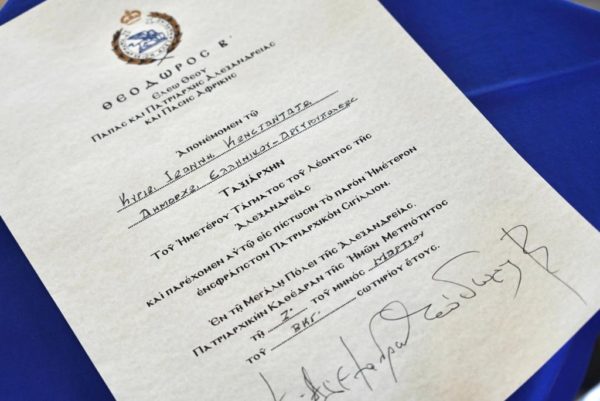 ΘΕΟΔΩΡΟΣ Β΄
ΕΛΕῼ ΘΕΟΥ
ΠΑΠΑΣ ΚΑΙ ΠΑΤΡΙΑΡΧΗΣ ΑΛΕΞΑΝΔΡΕΙΑΣ
ΚΑΙ ΠΑΣΗΣ ΑΦΡΙΚΗΣ
ΑΠΟΝΕΜΟΜΕΝ Τῼ
ΚΥΡΙῼ ΙΩΑΝΝῌ ΚΩΝΣΤΑΝΤΑΤῼ
ΔΗΜΑΡΧῼ ΕΛΛΗΝΙΚΟΥ-ΑΡΓΥΡΟΥΠΟΛΕΩΣ
ΤΑΞΙΑΡΧΗΝ
ΤΟΥ ΗΜΕΤΕΡΟΥ ΤΑΓΜΑΤΟΣ ΤΟΥ ΛΕΟΝΤΟΣ ΤΗΣ
ΑΛΕΞΑΝΔΡΕΙΑΣ
ΚΑΙ ΠΑΡΕΧΟΜΕΝ ΑΥΤῼ ΕΙΣ ΠΙΣΤΩΣΙΝ ΤΟ ΠΑΡΟΝ ΗΜΕΤΕΡΟΝ
ΕΝΣΦΡΑΓΙΣΤΟΝ ΠΑΤΡΙΑΡΧΙΚΟΝ ΣΙΓΙΛΛΙΟΝ.
ΕΝ Τῌ ΜΕΓΑΛῌ ΠΟΛΕΙ ΤΗΣ ΑΛΕΞΑΝΔΡΕΙΑΣ.
ΠΑΤΡΙΑΡΧΙΚΗΝ ΚΑΘΕΔΡΑΝ ΤΗΣ ΗΜΩΝ ΜΕΤΡΙΟΤΗΤΟΣ
Τῌ Ζ΄ ΤΟΥ ΜΗΝΟΣ ΜΑΡΤΙΟΥ
ΤΟΥ ΒΚΓ΄ ΣΩΤΗΡΙΟΥ ΕΤΟΥΣ.